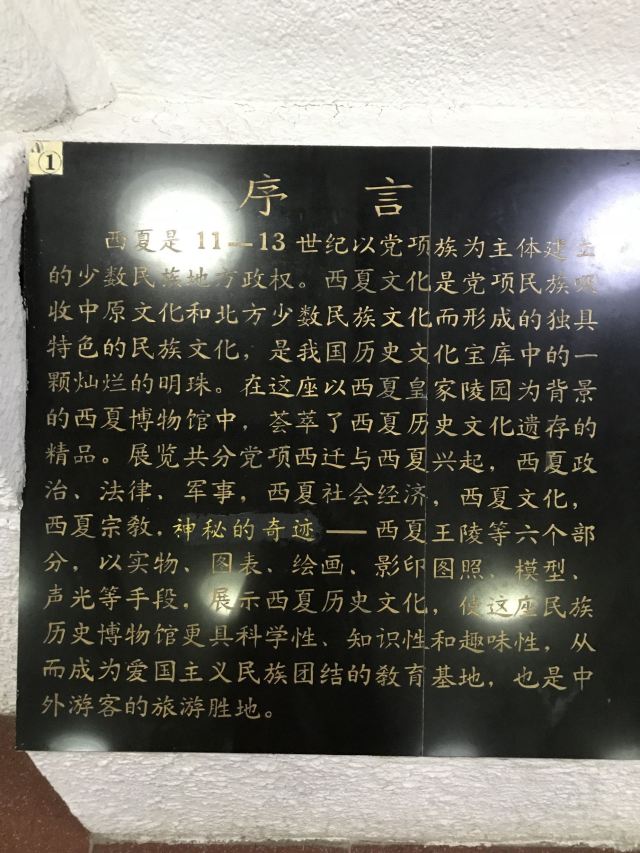 ①
序言
西夏是11—13世纪以党项族为主体建立
的少数民族地方政权。西夏文化是党项民族吸
收中原文化和北方少数民族文化而形成的独具
特色的民族文化,是我国历史文化宝库中的一
颗灿烂的明珠。在这座以西夏皇家陵园为背景
的西夏博物馆中,荟萃了西夏历史文化遗存的
精品。展览共分党项西迁与西夏兴起,西夏政
治、法律、军事,西夏社会经济,西夏文化,
西夏宗教,神秘的奇迹——西夏王陵等六个部
分,以实物、图表、绘画、影印图照、模型、
声光等手段,展示西夏历史文化,使这座民族
历史博物馆更具科学性、知识性和趣味性,从
而成为爱国主义民族团结的教育基地,也是中
外游客的旅游胜地。